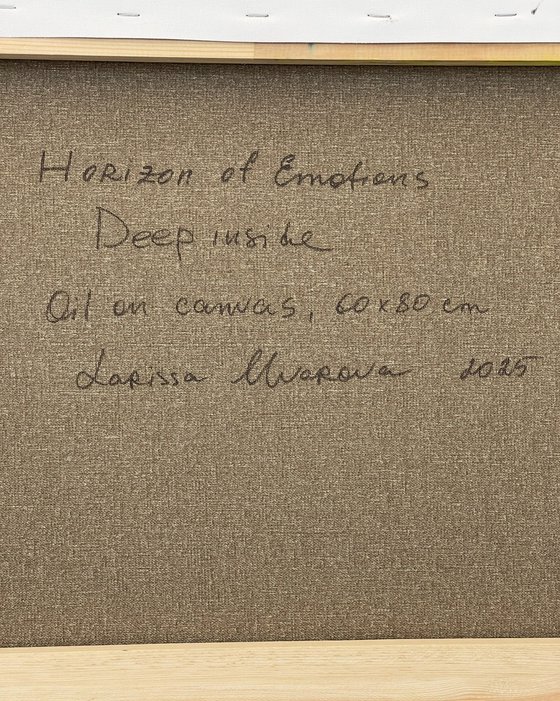 Horizon of Emotions
Deep inside
Oil on canvas, 60x80 cm
Larissa Uvarova 2025